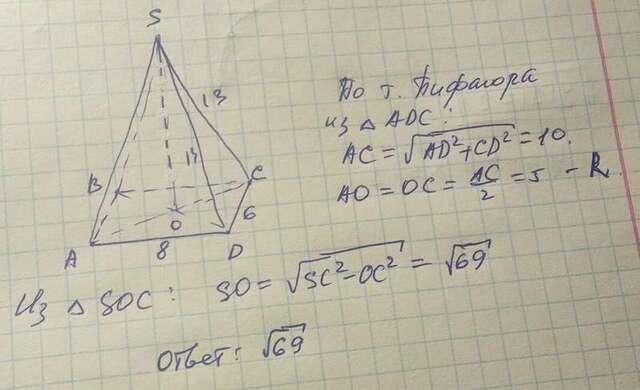 S
13
13
B
C
O
6
A
8
D
По т. Пифагора
из △ ADC:
AC = √(AD² + CD²) = 10.
AO = OC = AC/2 = 5 - R
Из △ SOC: SO = √(SC² - OC²) = √69
Ответ: √69